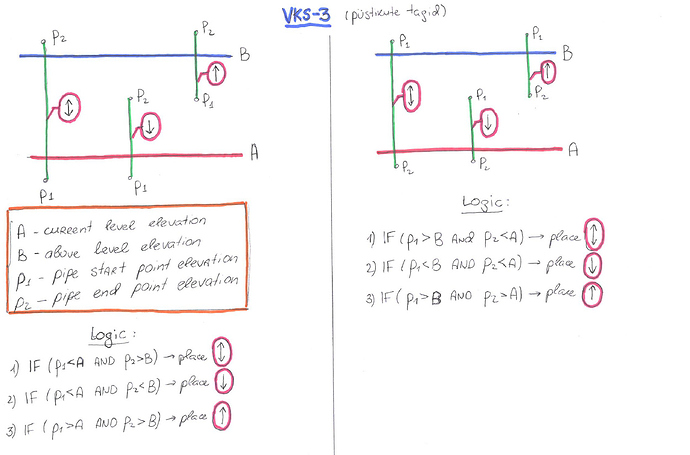 VKS-3 (püstikute tagid)
P2
P2
B
P2
P1
A
P1
P1
A - current level elevation
B - above level elevation
P1 - pipe start point elevation
P2 - pipe end point elevation
Logic:
1) IF (P1<A AND P2>B) → place ↕
2) IF (P1<A AND P2<B) → place ↓
3) IF (P1>A AND P2>B) → place ↑
P1
P1
B
P1
P2
A
P2
P2
Logic:
1) IF (P1>B AND P2<A) → place ↕
2) IF (P1<B AND P2<A) → place ↓
3) IF (P1>B AND P2>A) → place ↑